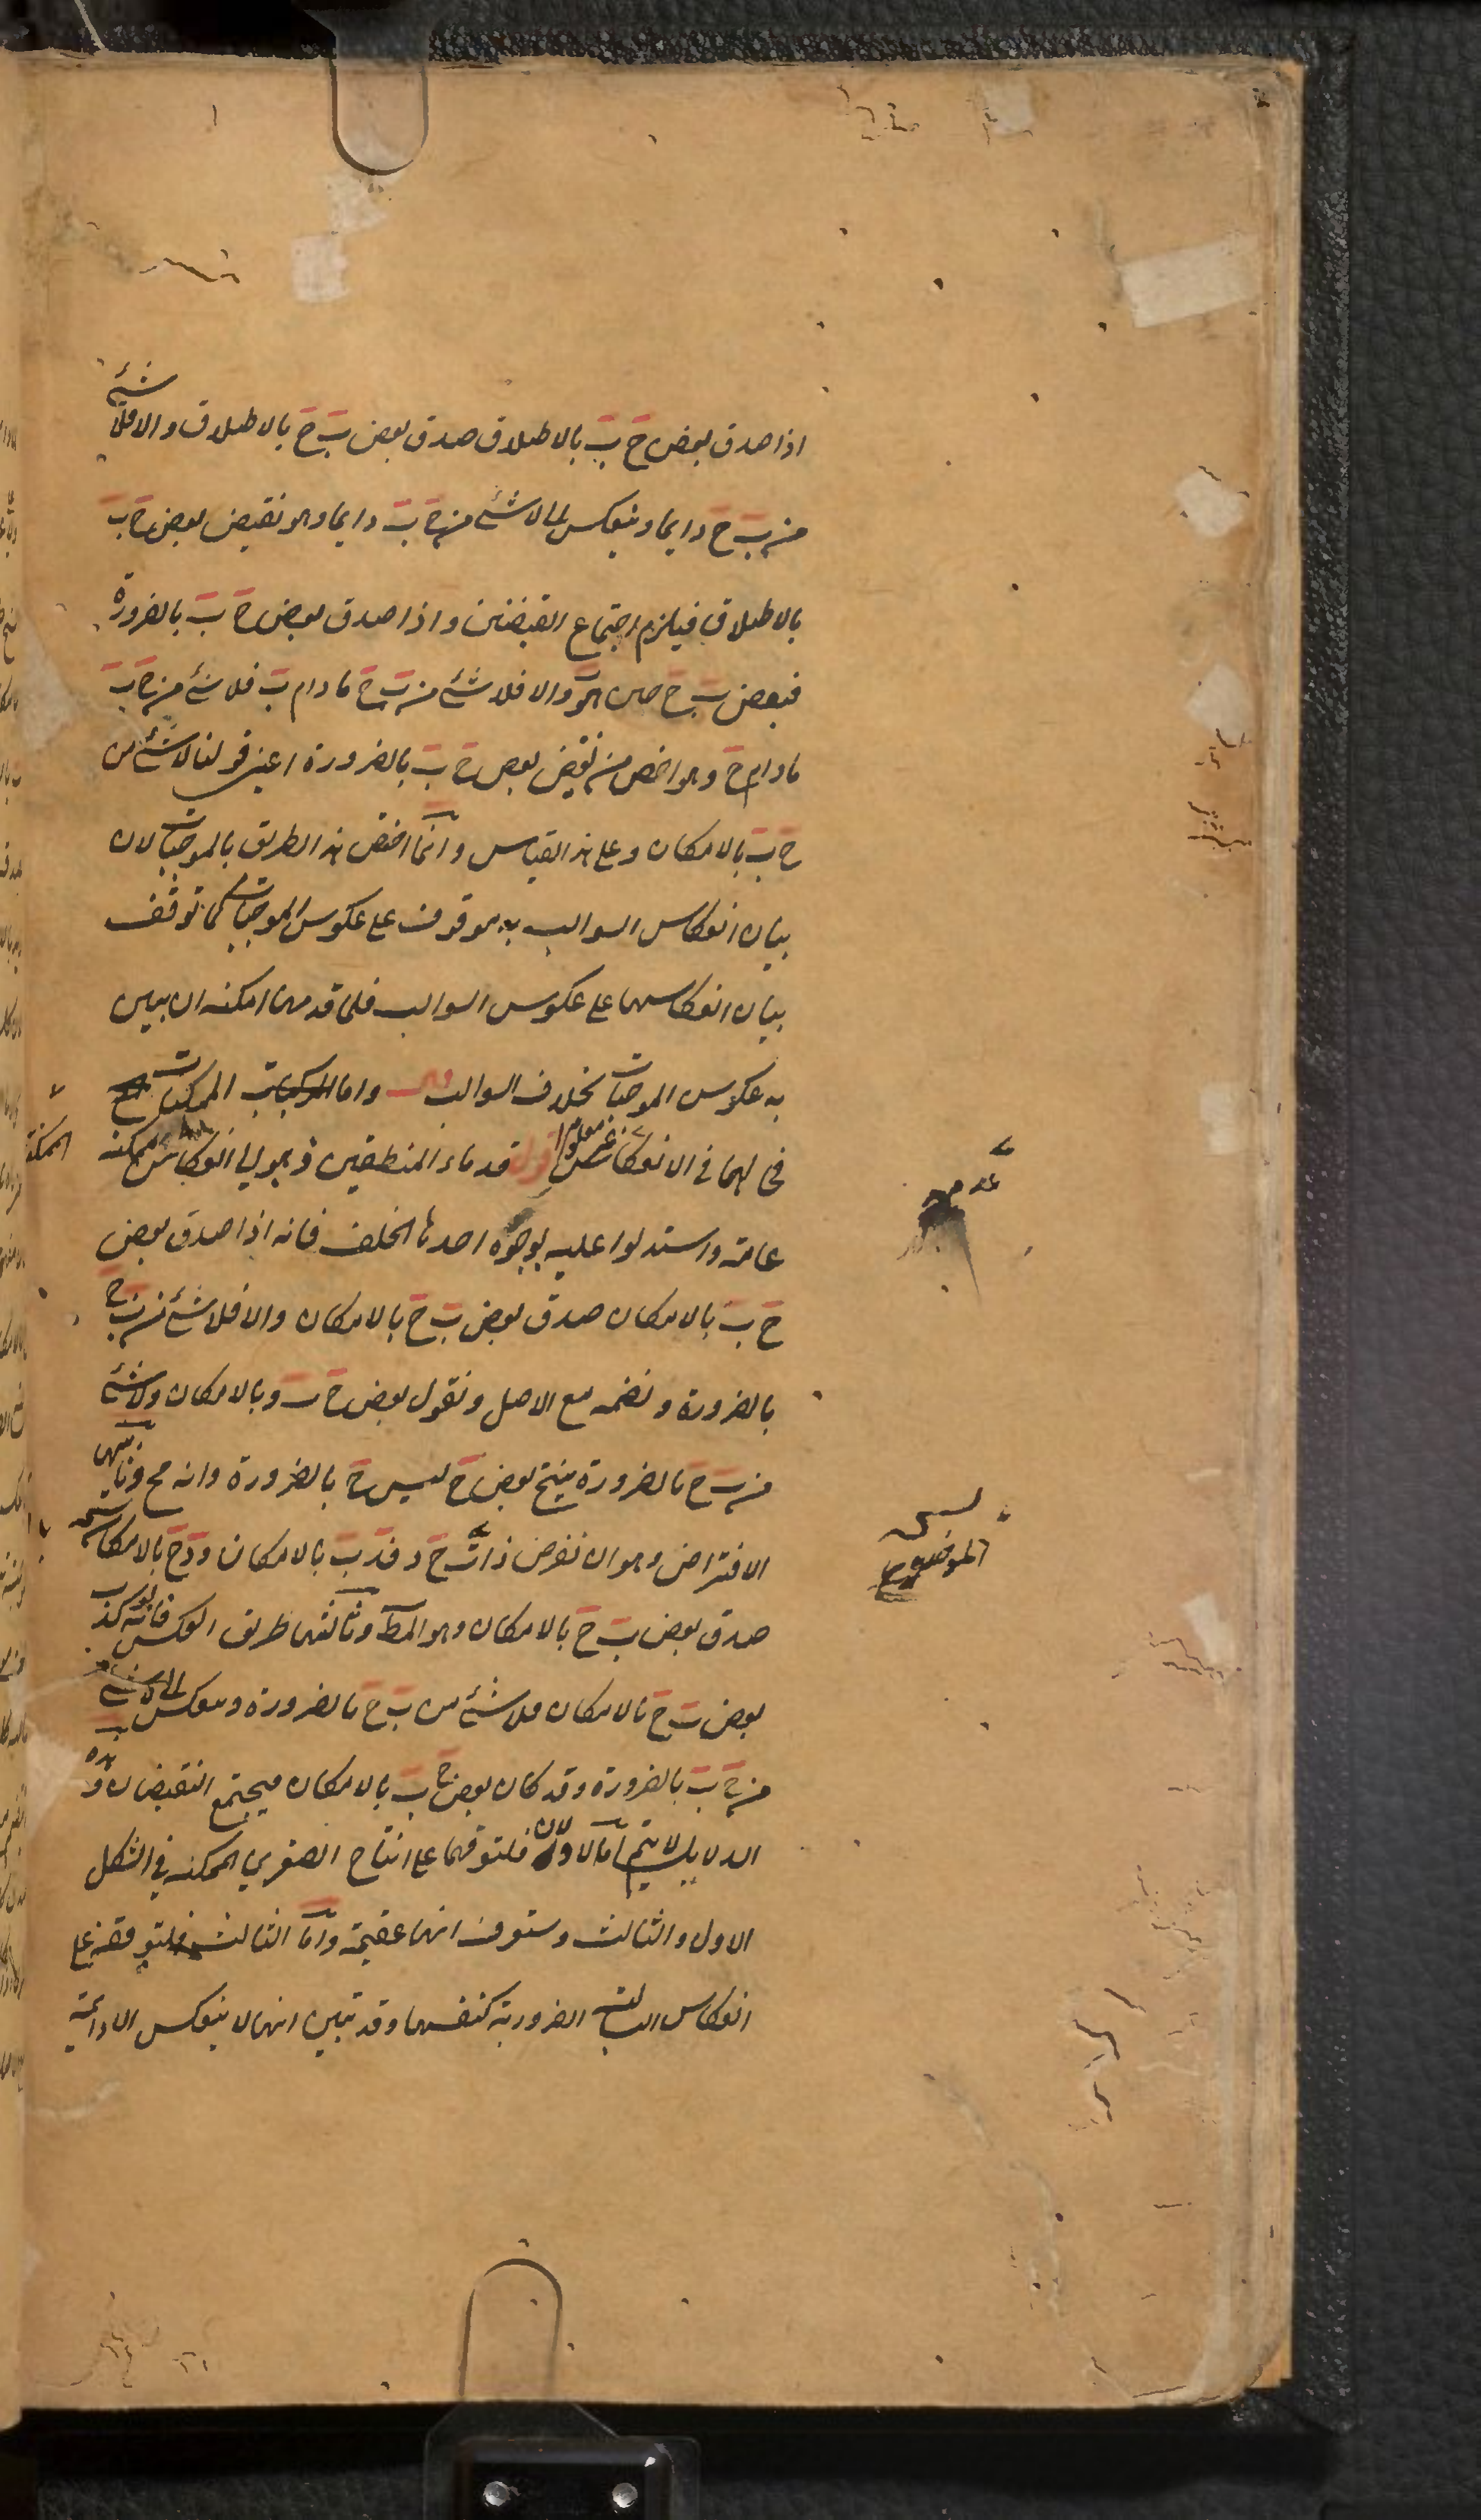 اذا صدق بعض ج ب بالاطلاق صدق بعض ب ج بالاطلاق والا فلا شئ
من ب ج دايما وينعكس الى لا شئ من ج ب دايما وهو نقيض بعض ج ب
بالاطلاق فيلزم اجتماع النقيضين واذا صدق بعض ج ب بالضرورة
فبعض ب ج حين هو ب والا فلا شئ من ب ج ما دام ب فلا شئ من ج ب
ما دام ج وهو اخص من نقيض بعض ج ب بالضرورة اعنى قولنا لا شئ من
ج ب بالامكان وعلى هذا القياس وانما اختص هذا الطريق بالموجبات لان
بيان انعكاس السوالب به موقوف على عكوس الموجبات كما توقف
بيان انعكاسها على عكوس السوالب فلما قدمها امكنه ان يبين
به عكوس الموجبات بخلاف السوالب واما الممكنات
فحالهما فى الانعكاس غير معلوم اقول قدماء المنطقيين ذهبوا الى انعكاس الممكنة ممكنة
عامة واستدلوا عليه بوجوه احدها الخلف فانه اذا صدق بعض
ج ب بالامكان صدق بعض ب ج بالامكان والا فلا شئ من ب ج
بالضرورة ونضمه مع الاصل ونقول بعض ج ب وبالامكان ولا شئ
من ب ج بالضرورة ينتج بعض ج ليس ج بالضرورة وانه مح وثانيها
الافتراض وهو ان نفرض ذات ج د فد ب بالامكان ود ج بالامكان
صدق بعض ب ج بالامكان وهو المط وثالثها طريق العكس فانه لو كذب
بعض ب ج بالامكان فلا شئ من ب ج بالضرورة وينعكس الى لا شئ
من ج ب بالضرورة وقد كان بعض ج ب بالامكان فيجتمع النقيضان وهذه
الدلايل لا يتم اما الاولان فلتوقفهما على انتاج الصغرى الممكنة فى الشكل
الاول والثالث وستعرف انها عقيمة واما الثالث فلتوقفه على
انعكاس السالبة الضرورية كنفسها وقد تبين انها لا ينعكس الا دائمة
الموضوع